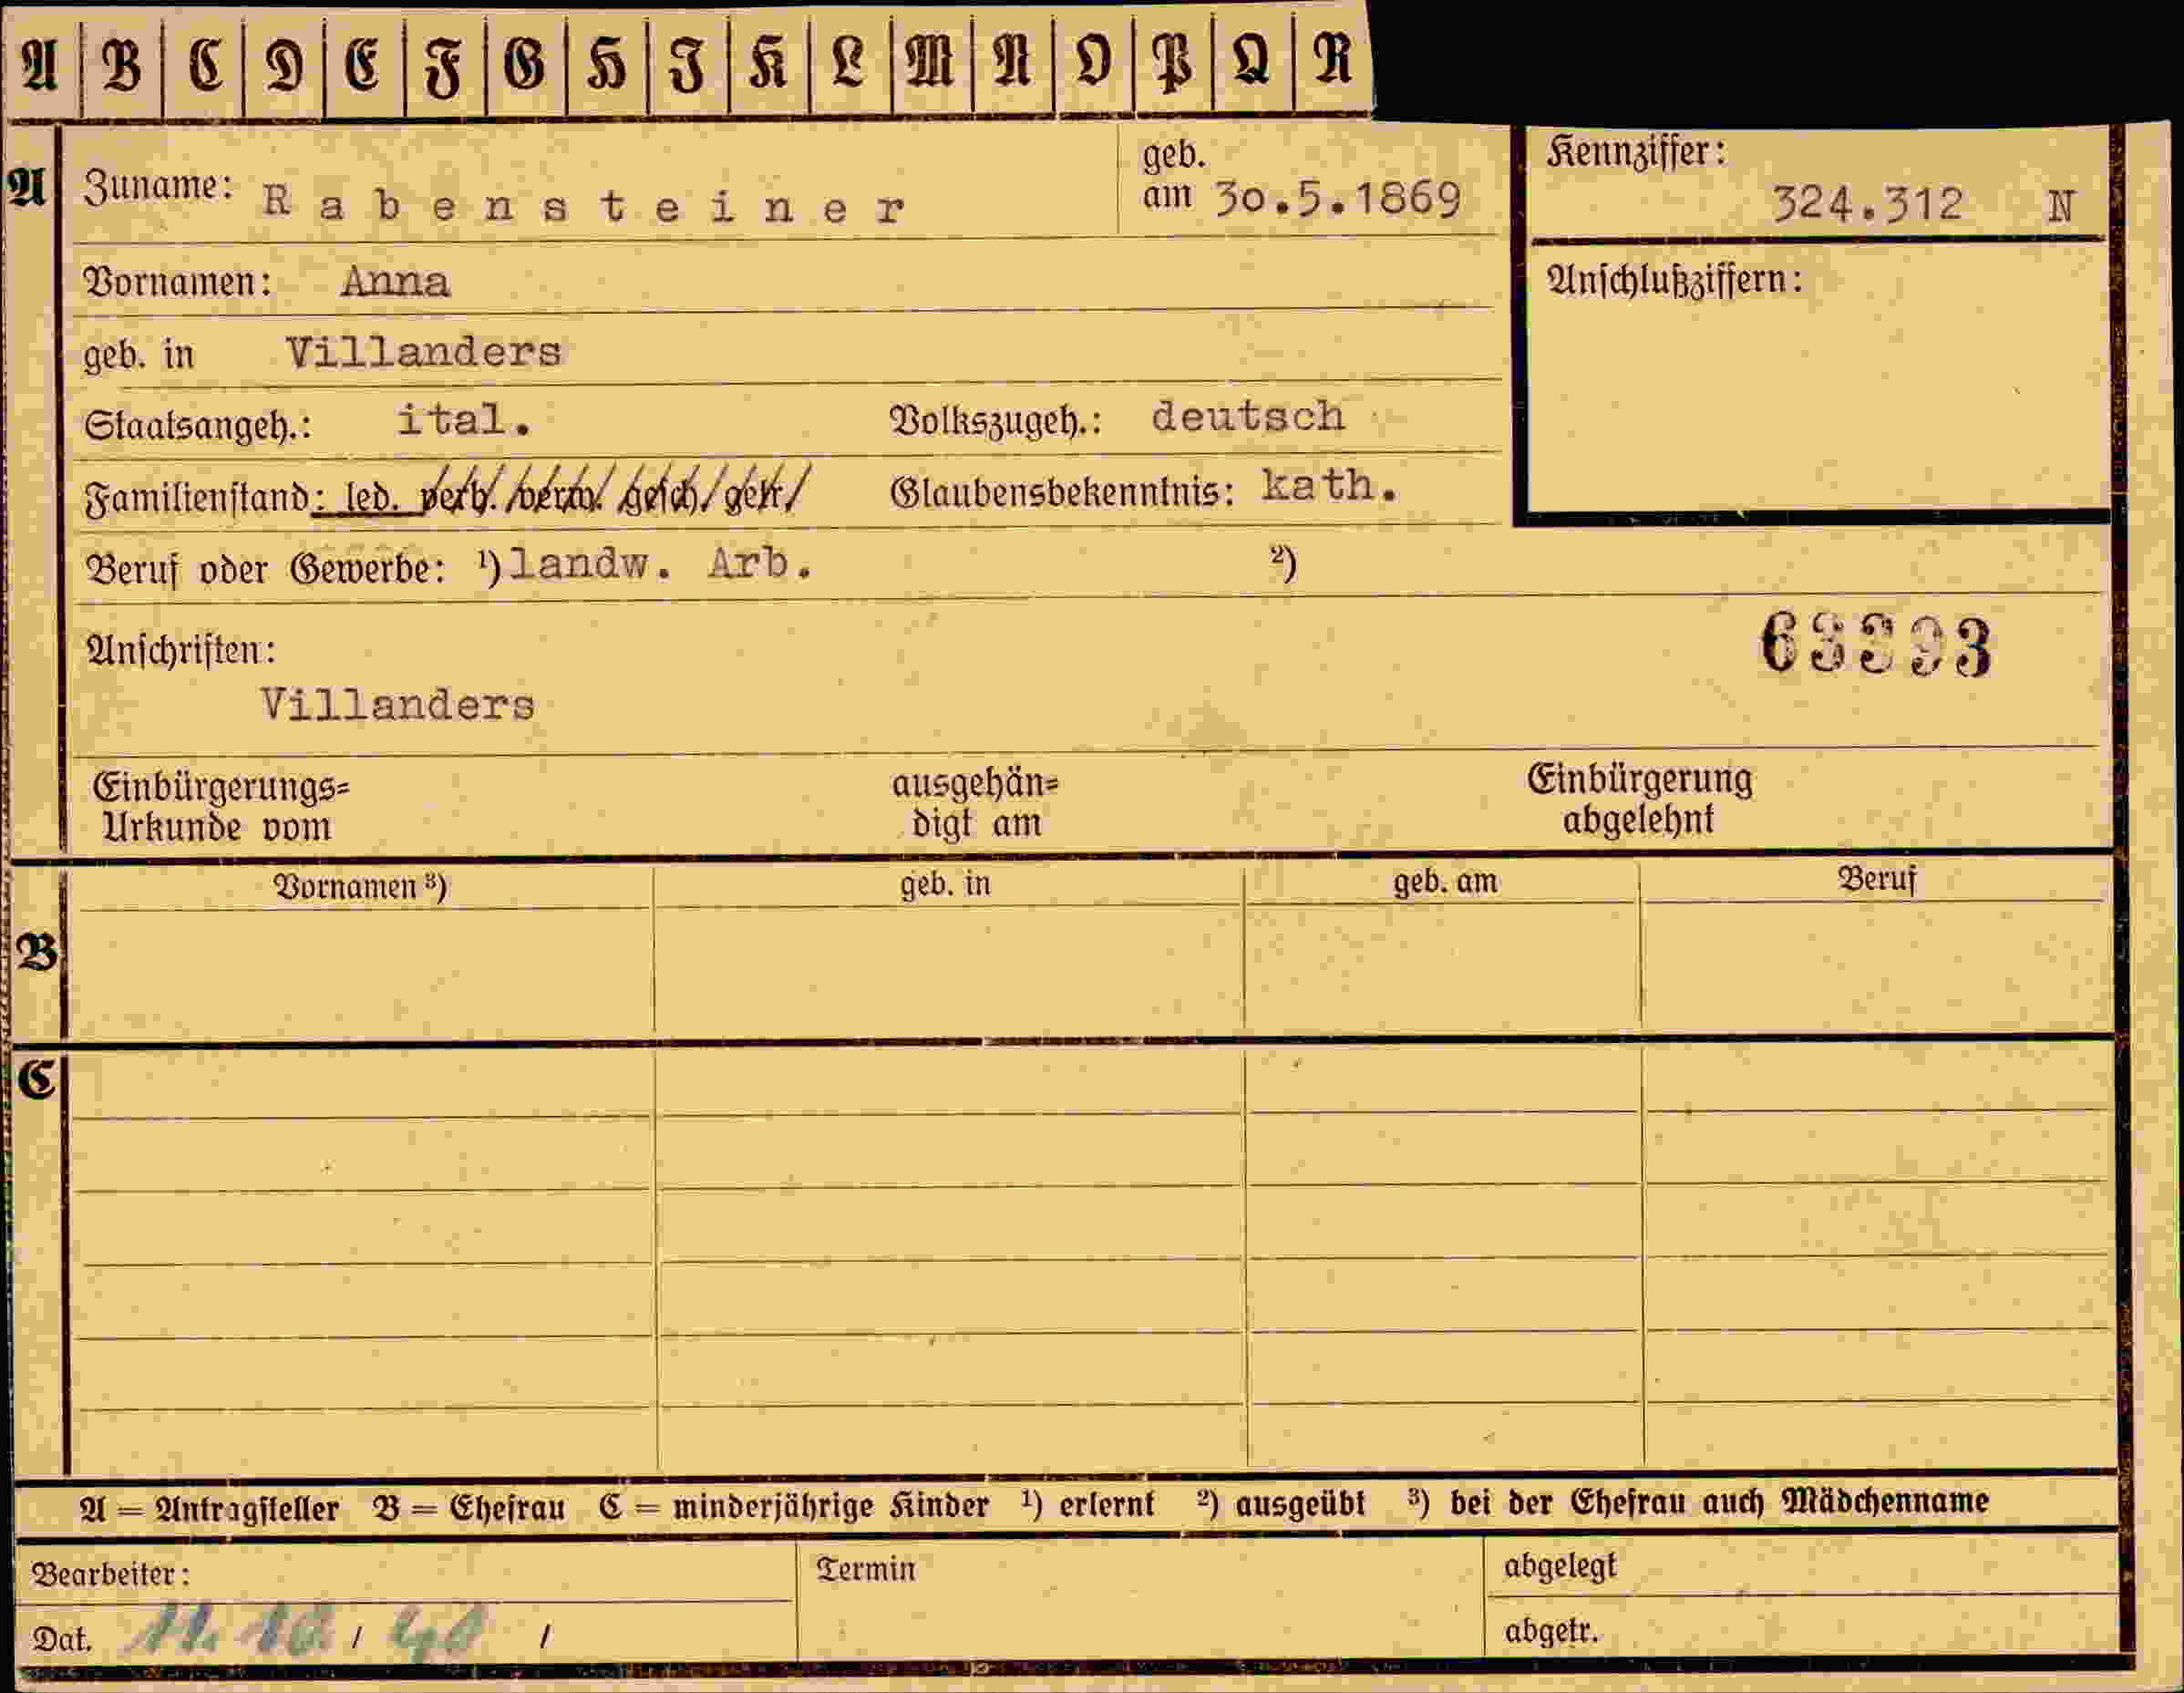 A B C D E F G H I K L M N O P Q R
A Zuname: Rabensteiner geb. am 30.5.1869 Kennziffer: 324.312 N
Vornamen: Anna Anschlußziffern:
geb. in Villanders
Staatsangeh.: ital. Volkszugeh.: deutsch
Familienstand: led. verh. verw. gesch. getr. Glaubensbekenntnis: kath.
Beruf oder Gewerbe: ¹) landw. Arb. ²)
Anschriften:
Villanders
Einbürgerungs= ausgehän= Einbürgerung
Urkunde vom digt am abgelehnt
Vornamen ³) geb. in geb. am Beruf
B
C
A = Antragsteller B = Ehefrau C = minderjährige Kinder ¹) erlernt ²) ausgeübt ³) bei der Ehefrau auch Mädchenname
Bearbeiter: Termin abgelegt
Dat. 11. 10. / 40 / abgetr.